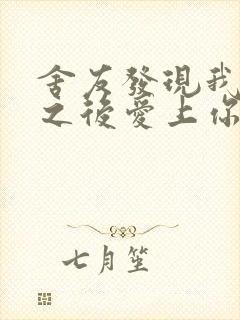 舍友發現我
之後愛上你
七月笙